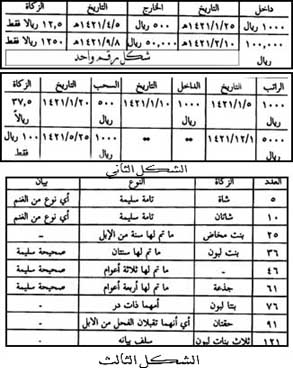 داخل التاريخ الخارج التاريخ الزكاة
١٠٠٠ ريال ١٤٢١/١/٢٥هـ ٥٠٠ ريال ١٤٢١/٤/٥هـ ١٢,٥ ريال فقط
١٠٠,٠٠٠ ريال ١٤٢١/٢/١٠هـ ٥٠,٠٠٠ ريال ١٤٢١/٩/٨هـ ١٢٥٠ ريال فقط
شكل رقم واحد
الراتب التاريخ الداخل التاريخ السحب التاريخ الزكاة
١٠٠٠ ١٤٢١/١/٥ ١٠٠٠ ١٤٢١/١/١٠ ٥٠٠ ريال ١٤٢١/١/٢٠ ٣٧,٥ ريالاً
٥٠٠٠ ريال ١٤٢١/١٢/١ ** ** ١٠٠٠ ريال ١٤٢١/٥/٢٥ ١٠٠ ريال فقط
الشكل الثاني
العدد الزكاة النوع بيان
٥ شاة تامة سليمة أي نوع من الغنم
١٠ شاتان تامة سليمة أي نوع من الغنم
٢٥ بنت مخاض ما تم لها سنة من الإبل -
٣٦ بنت لبون ما تم لها سنتان صحيحة سليمة
٤٦ - ما تم لها ثلاثة أعوام صحيحة سليمة
٦١ جذعة ما تم لها أربعة أعوام صحيحة سليمة
٧٦ بنتا لبون أمهما ذات در -
٩١ حقتان أي أنهما تقبلان الفحل من الابل -
١٢١ ثلاث بنات لبون سلف بيانه -
الشكل الثالث